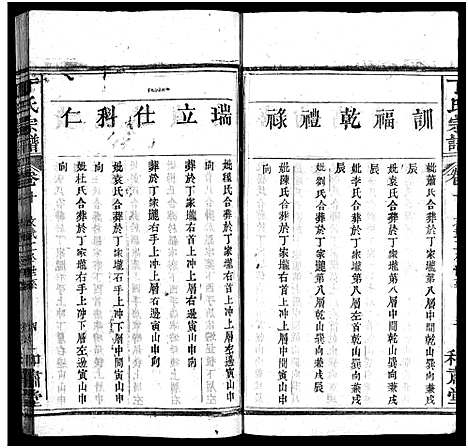 丁氏宗譜
卷十
和肅堂
訓
妣蕭氏合葬於丁家壠第八層中間乾山巽向兼戌
辰
福
妣袁氏合葬於丁家壠第八層中間乾山巽向兼戌
辰
乾
妣李氏合葬於丁家壠第八層乾山巽向兼戌
辰
禮
妣劉氏合葬於丁家壠第八層乾山巽向兼戌辰
祿
妣陳氏合葬於丁家壠右首上冲上層右邊寅山申
向
瑞
妣穆氏合葬於丁家壠右首上冲上層左邊寅山申
向
立
葬於丁家壠右手上冲上層右邊寅山申向
仕
妣袁氏合葬於丁家壠右手上冲下層中間寅山申
向
科
葬於丁家壠右手上冲下層右邊寅山申向
仁
妣杜氏合葬於丁家壠右手上冲下層左邊寅山申
向
丁氏宗譜
卷十
和肅堂